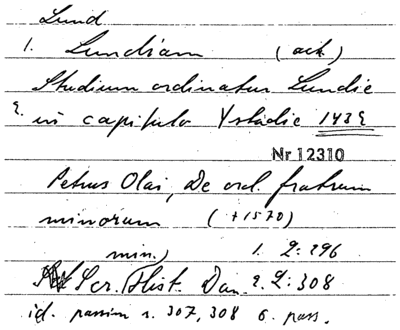 Lund
1. Lundiam (ack.)
Studium ordinatur Lundie
2. in capitulo Ystadie 1432
Nr 12310
Petrus Olai, De ord. fratrum
minorum (†1570)
min.) 1. 2:296
Scr. Hist. Dan. 2. 2:308
id. passim s. 307, 308 o. pass.